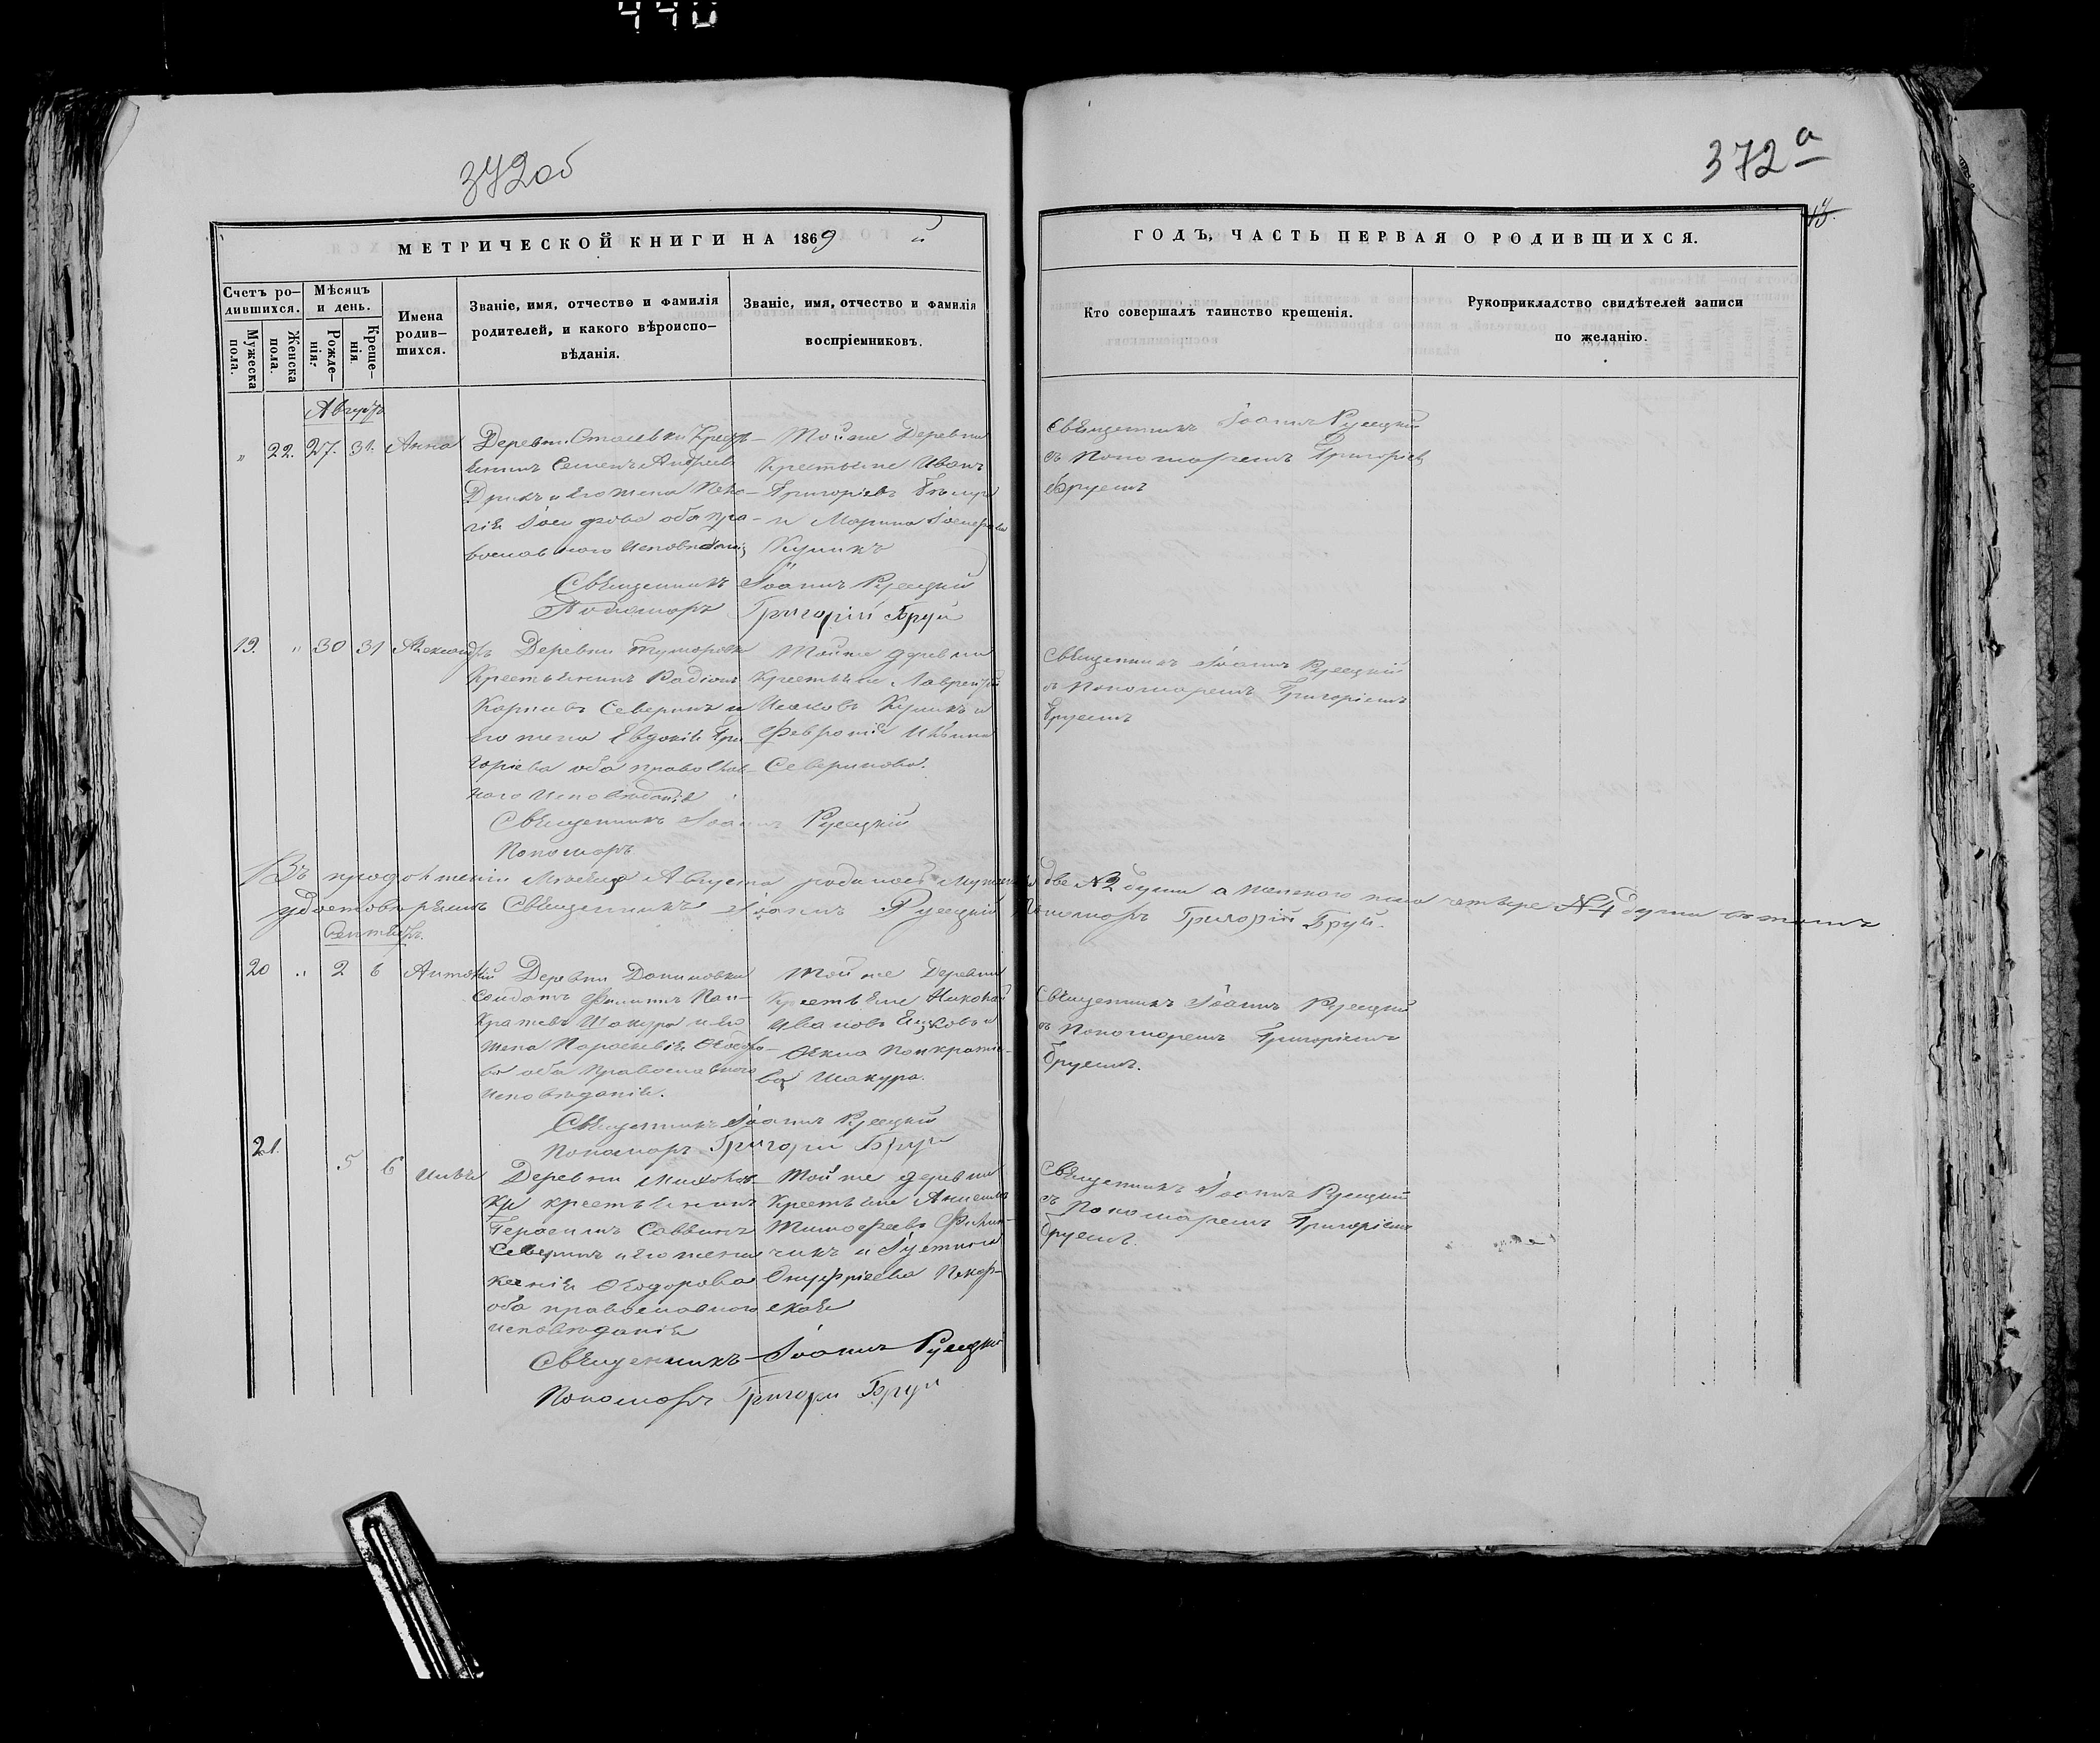 440
372об
372а
13.
МЕТРИЧЕСКОЙ КНИГИ НА 1869 й
ГОДЪ, ЧАСТЬ ПЕРВАЯ О РОДИВШИХСЯ.
Счетъ ро-
дившихся.
Мужеска
пола.
Женска
пола.
Мѣсяцъ
и день.
Рожде-
нія.
Креще-
нія.
Имена
родив-
шихся.
Званіе, имя, отчество и фамилія
родителей, и какого вѣроиспо-
вѣданія.
Званіе, имя, отчество и фамилія
воспріемниковъ.
Кто совершалъ таинство крещенія.
Рукоприкладство свидѣтелей записи
по желанію.
Августъ
" 22. 27. 31. Анна
Деревни
Семенъ Андреевъ
и его жена
Іосифова оба пра-
вославнаго исповѣданія
Той же Деревни
Крестьяне Иванъ
Григоріевъ
и Марина
Куликъ
Священникъ Іоаннъ Русецкій
съ Пономаремъ Григоріемъ
Бруемъ
Священникъ Іоаннъ Русецкій
Пономарь Григорій Бруй
19. " 30 31 Александръ
Деревни
Крестьянинъ Радіонъ
Карповъ Северинъ и
его жена Евдокія Гри-
горіева оба православ-
наго исповѣданія
Той же деревни
Крестьяне Лаврентій
Куликъ и
Февронія
Северинова.
Священникъ Іоаннъ Русецкій
съ Пономаремъ Григоріемъ
Бруемъ
Священникъ Іоаннъ Русецкій
Пономарь
Въ продолженіи Мѣсяца Августа родилось две №2 души а женского пола четыре №4 души въ томъ
удостовѣряемъ Священникъ Іоаннъ Русецкій Пономарь Григорій Бруй.
Сентябрь.
20 " 2 6 Антоній
Деревни Даниловки
Солдатъ Филиппъ Пан-
кратевъ Шакура и его
жена Параскевія Ѳеодоро-
ва оба православнаго
исповѣданія.
Той же Деревни
Крестьяне Николай
Ивановъ и
Ѳекла Панкратіе-
ва Шакура.
Священникъ Іоаннъ Русецкій
съ Пономаремъ Григоріемъ
Бруемъ.
Священникъ Іоаннъ Русецкій
Пономарь Григорій Бруй
21. 5 6 Илья
Деревни
ки крестьянинъ
Герасимъ Саввинъ
Северинъ и его жена
Ѳеодорова
оба православнаго
исповѣданія
Той же деревни
Крестьяне
Тимофеевъ
и Іустина
Онуфріева
Священникъ Іоаннъ Русецкій
съ Пономаремъ Григоріемъ
Бруемъ.
Священникъ Іоаннъ Русецкій
Пономарь Григорій Бруй